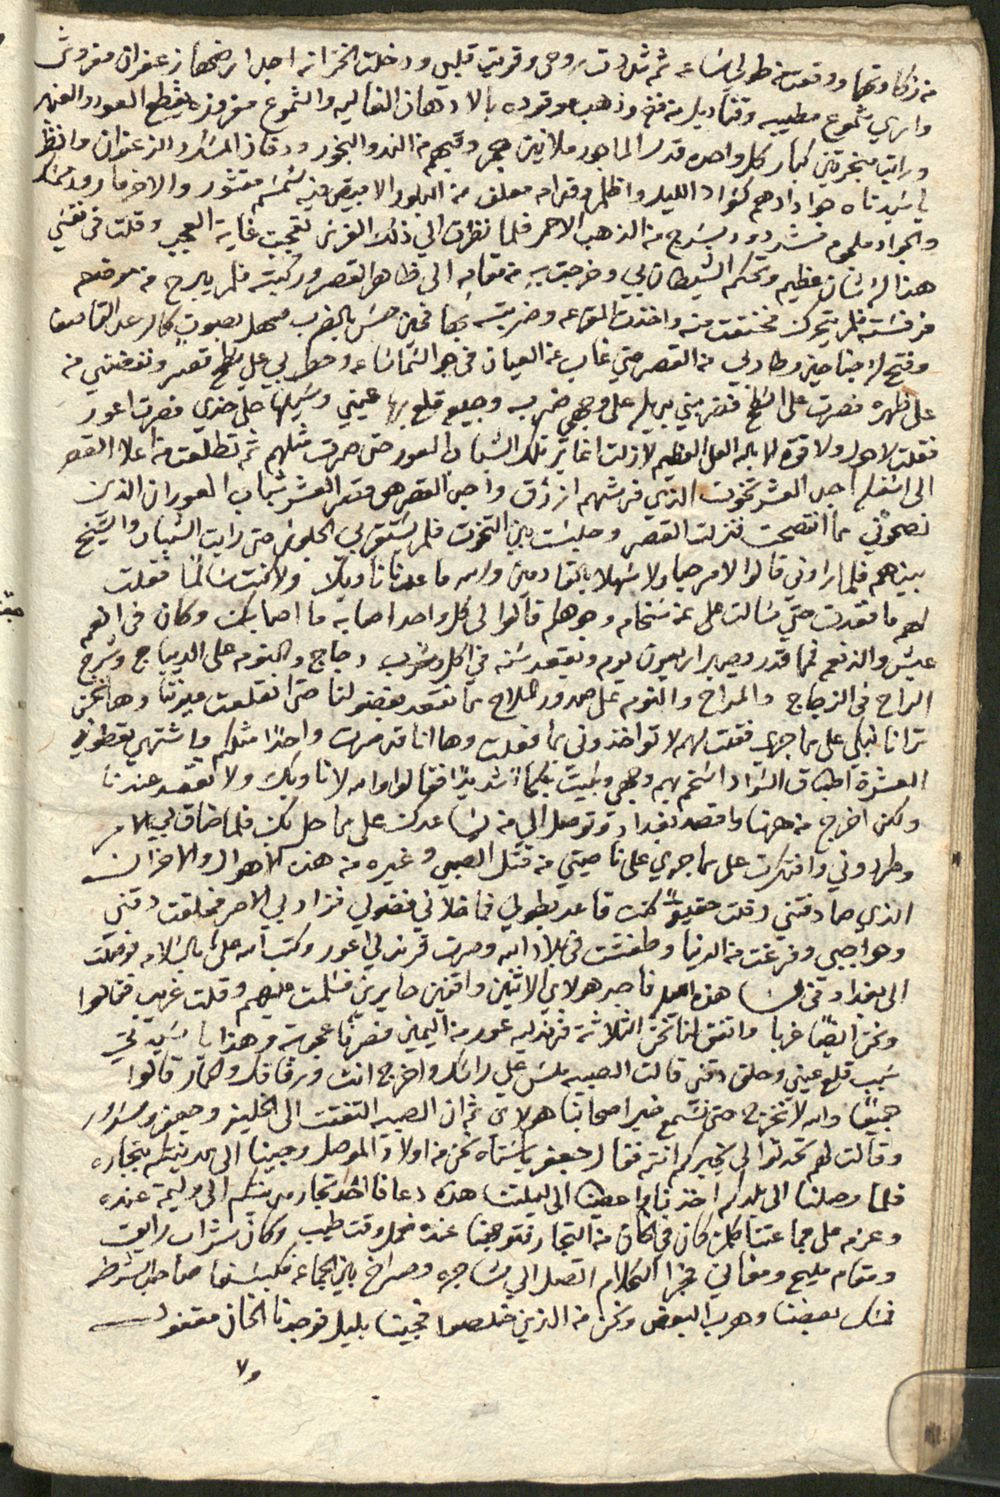 من زكاوتها ووقعت طويل ساعه ثم شددت روحي وقويت قلبي ودخلت الخزانه اجد ارضها زعفران مفروش
واري شموع مطيبه وقناديل من فضه وذهب موقوده بالادهان الغاليه والشموع مغروزه بقطع العود والعنبر
ورايت مبخرتين كبار كل واحده قدر الماجور ملانين جمر وفيهم من الند والبخور ودخان المسك والزعفران وانظر
يا ستناه جواد ادهم كسواد الليل اذا اظلم وقدامه معلف من البلور الابيض فيه سمسم مقشور والاخر ماورد ممسك
والجواد ملجوم مشدود بسرج من الذهب الاحمر فلما نظرت الي ذلك الفرس تعجبت غاية العجب وقلت في نفسي
هذا له شان عظيم وتحكم الشيطان بي وخرجت به من مقامه الى ظاهر القصر وركبته فلم يبرح من موضعه
فرفسته فلم يتحرك فحنقت منه واخذت المقرعه وضربته بها فحين حس بالضرب صهل بصوت كالرعد القاصف
وفتح له جناحين وطار بي من القصر حتي غاب عن العيان في جو السما ساعه وحط بي علي سطح قصر ونفضني من
على ظهره فصرت على السطح فضربني بديله على وجهي ضربه وجيعه قلع بها عيني وسيلها على خدي فصرت اعور
فقلت لا حول ولا قوة الا بالله العلي العظيم لا زلت اعاير تلك الشباب العور حتى صرت مثلهم ثم تطلعت من اعلا القصر
الى اسفله اجد العشر تخوت الذي فرشهم ازرق واجد القصر هو قصر العشر شباب العوران الذين
نصحوني بما انتصحت فنزلت القصر وجلست بين التخوت فلم يستقر بي الجلوس حتى رايت الشباب والشيخ
بينهم فلما راوني قالوا لا مرحبا ولا سهلا بالقادمين والله ما عدنا ناويك ولا كنت سالما فقلت
لهم ما قعدت حتي سالتكم عن سخام وجوهكم قالوا لي كل واحد اصابه ما اصابك وكان في انعم
عيش والذعم فما قدر يصبر اربعين يوم ويقعد سنه في اكل وشرب دجاج والنوم على الديباج وشرب
الراح في الزجاج والمزاح والنوم على صدور الملاح بما نقعد بفضولنا حتى انقلعت عيوننا وها نحن
ترانا نبكي على ما جري فقلت لهم لا تواخذوني بما فعلت وها انا قد صرت واحدا مثلكم واشتهي تعطوني
العشرة اطباق السواد اسخم بهم وجهي وبكيت بكاء شديدا فقالوا والله لا ناويك ولا تقعد عندنا
ولكن اخرج من ههنا واقصد بغداد وتوصل الي من يساعدك على ما حل بك فلما ضاق بي الامر
وطردوني وافتكرت على ما جري على ناصيتي من قتل الصبي وغيره من هذه الاهوال والاحزان
الذي صادفتني وقلت حقيقا كنت قاعد بطولي فما خلاني فضولي فزاد بي الامر فحلقت دقني
وحواجبي وفرغت من الدنيا وطفشت في بلاد الله وصرت قرندلي اعور وكتب الله علي بالسلامه فوصلت
الى بغداد في مسا هذه الليله فاجد هولاي الاثنين واقفين حايرين فسلمت عليهم وقلت غريب فقالوا
ونحن ايضا غربا واتفق لنا نحن الثلاثة قرندليه عور من اليمين فصرنا عجوبه وهذا يا سيدتي
سبب قلع عيني وحلق دقني قالت الصبيه ملس علي راسك واخرج انت ورفاقك والحمار قالوا
جميعا والله لا نخرج حتى نسمع خبر اصحابنا هولاي ثم ان الصبيه التفتت الى الخليفه وجعفر ومسرور
وقالت لهم تحدثوا لي بخبركم انتم فقال جعفر يا ستاه نحن من اولاد الموصل وجينا الى مدينتكم بتجاره
فلما وصلنا الى بلدكم اخذنا واعصنا الى ليلتنا هذه دعانا احد تجار مدينتكم الي وليمة عنده
وعزم على جماعتنا كل من كان في الخان من التجار فتوجهنا عنده فعمل وقت طيب وكان شراب رايق
ومقام مليح ومغاني فجرا الكلام اتصل الي مشاجره وصراخ بين الجماعه فكبسنا صاحب الشرطه
فمسك بعضنا وهرب البعض ونحن من الذين خلصوا فجينا بليل فوجدنا الخان مقفول
ولا